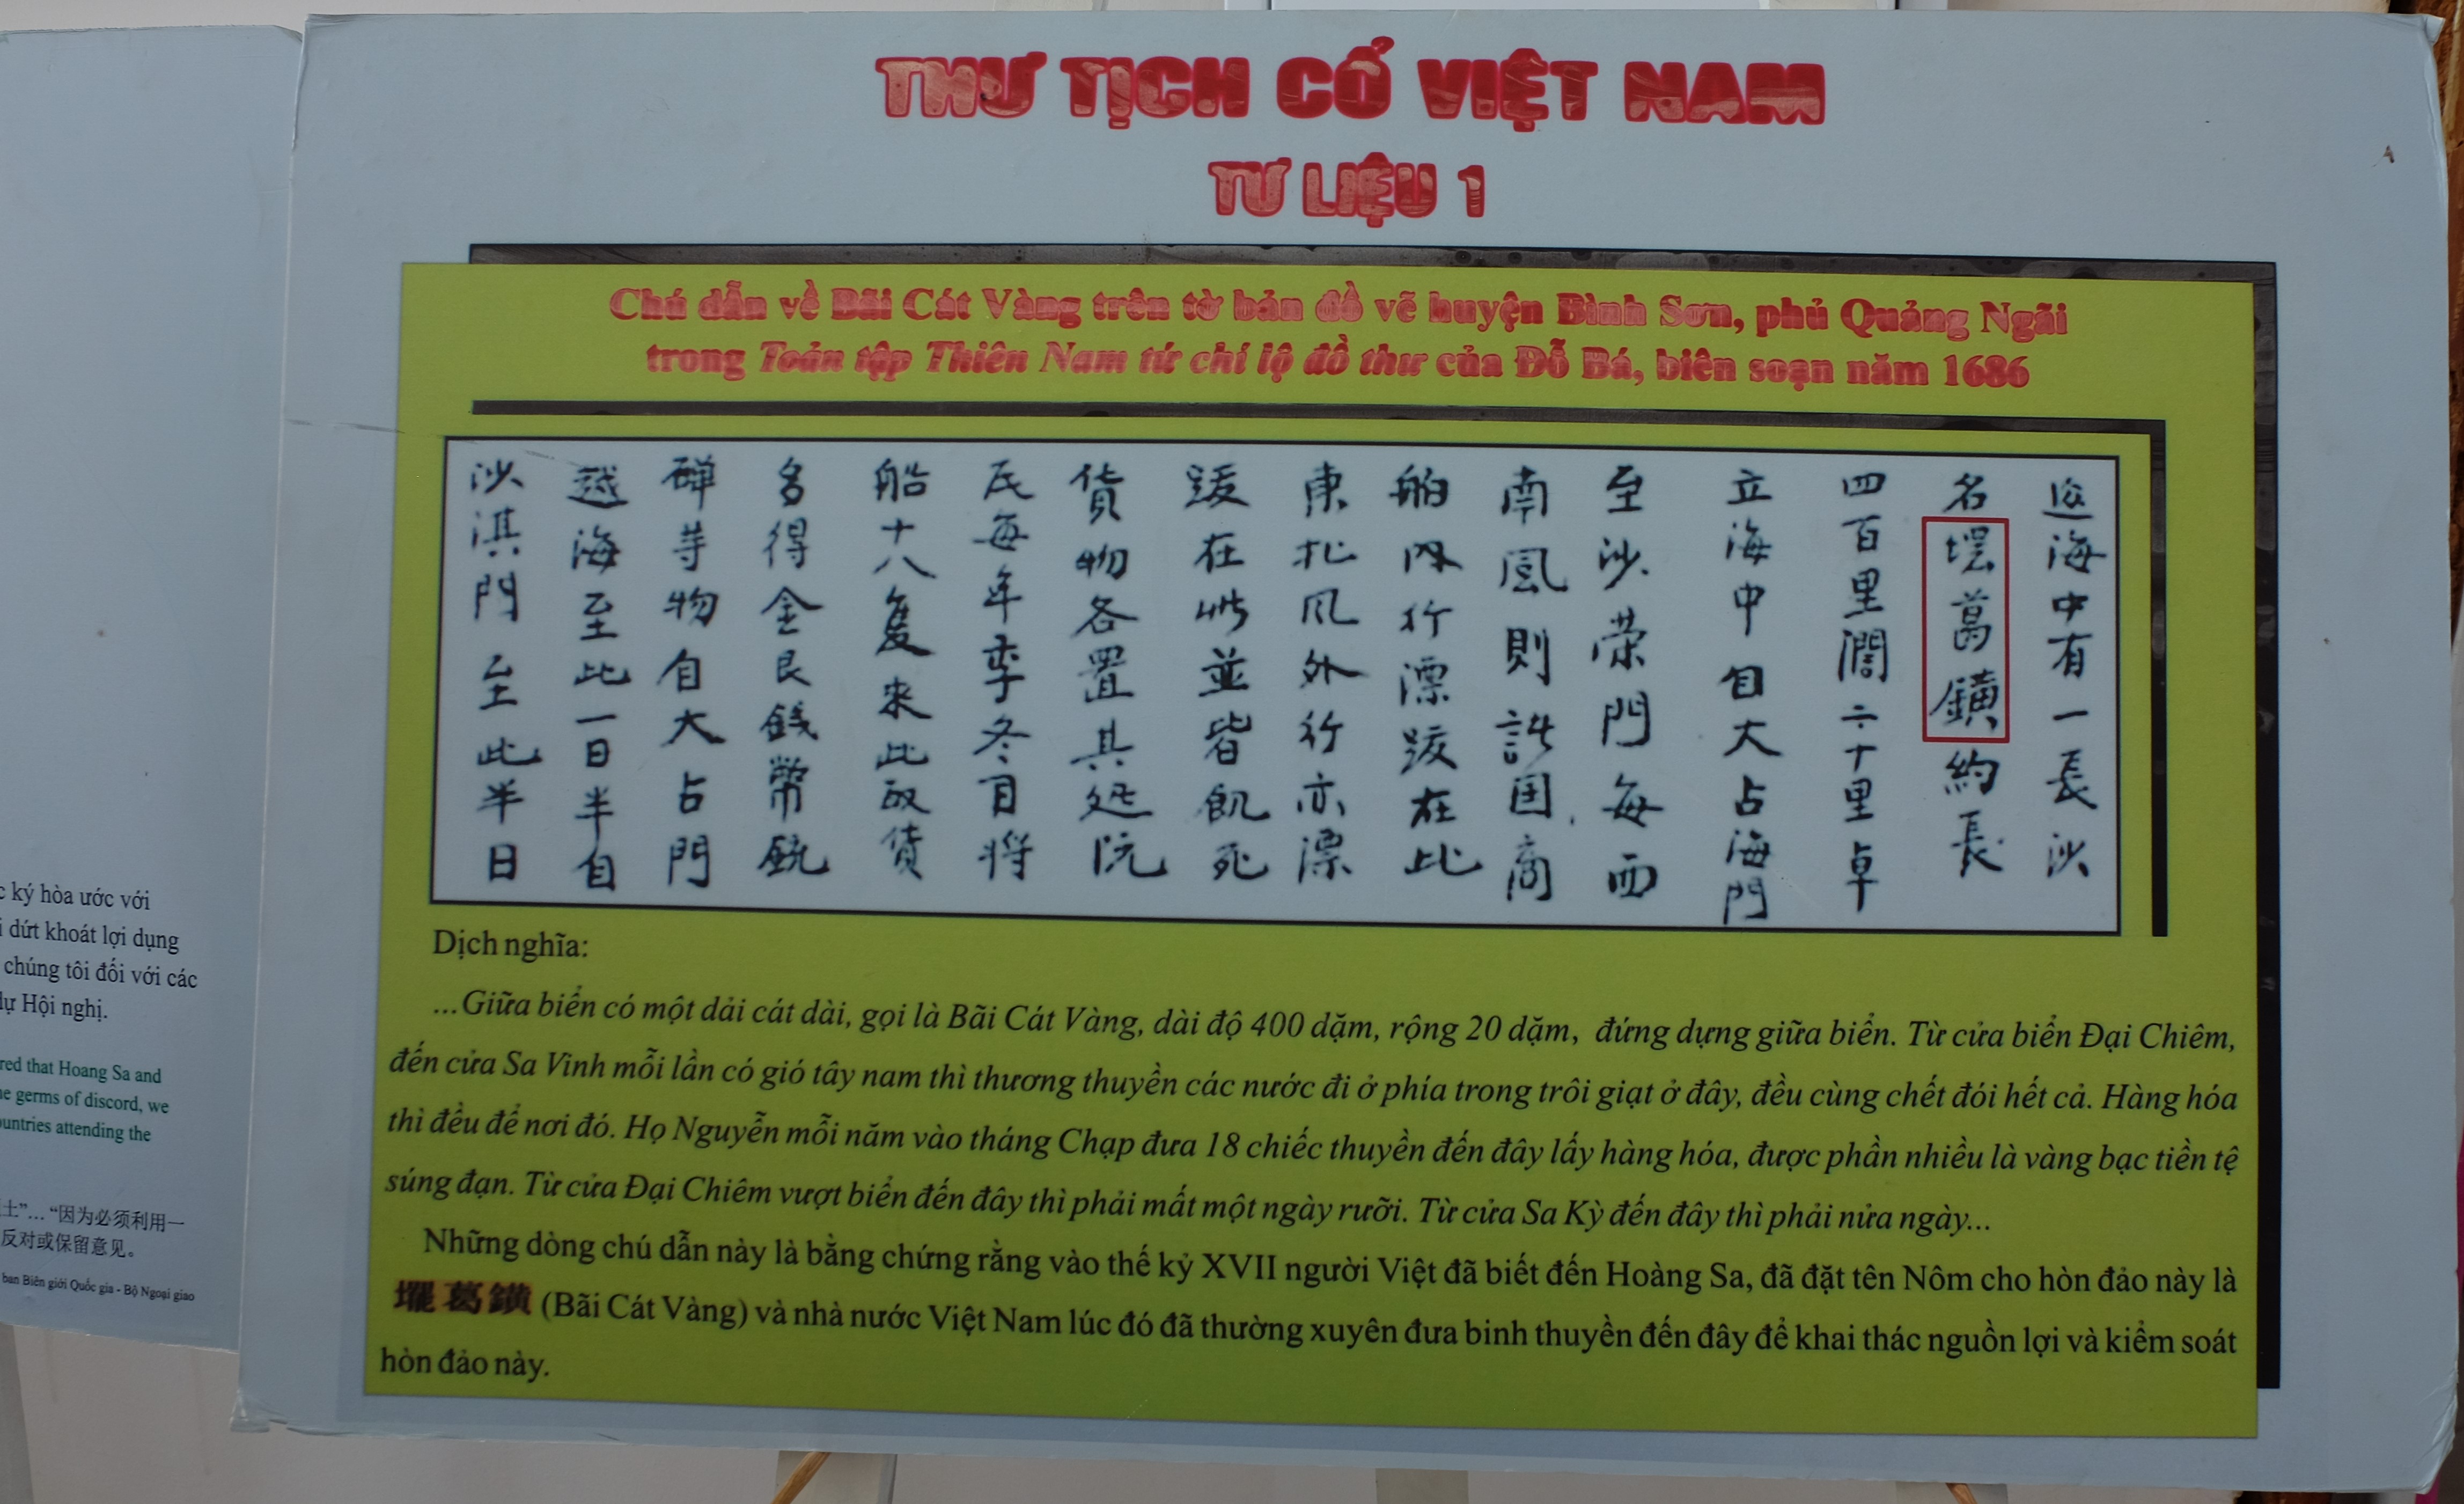 THƯ TỊCH CỔ VIỆT NAM
TƯ LIỆU 1
Chú dẫn về Bãi Cát Vàng trên tờ bản đồ vẽ huyện Bình Sơn, phủ Quảng Ngãi
trong Toản tập Thiên Nam tứ chí lộ đồ thư của Đỗ Bá, biên soạn năm 1686
海中有一長沙
名 葛鐄約長
四百里濶二十里卓
立海中自大占海門
至沙榮門每西
南風則 国商
舶內行漂跋在此
東北風外行亦漂
跋在此並皆飢死
貨物各置其処阮
氏每年季冬月將
船十八隻來此取貨
多得金艮錢幣銃
磾等物自大占門
越海至此一日半自
沙淇門至此半日
Dịch nghĩa:
...Giữa biển có một dải cát dài, gọi là Bãi Cát Vàng, dài độ 400 dặm, rộng 20 dặm, đứng dựng giữa biển. Từ cửa biển Đại Chiêm,
đến cửa Sa Vinh mỗi lần có gió tây nam thì thương thuyền các nước đi ở phía trong trôi giạt ở đây, đều cùng chết đói hết cả. Hàng hóa
thì đều để nơi đó. Họ Nguyễn mỗi năm vào tháng Chạp đưa 18 chiếc thuyền đến đây lấy hàng hóa, được phần nhiều là vàng bạc tiền tệ
súng đạn. Từ cửa Đại Chiêm vượt biển đến đây thì phải mất một ngày rưỡi. Từ cửa Sa Kỳ đến đây thì phải nửa ngày...
Những dòng chú dẫn này là bằng chứng rằng vào thế kỷ XVII người Việt đã biết đến Hoàng Sa, đã đặt tên Nôm cho hòn đảo này là
葛鐄 (Bãi Cát Vàng) và nhà nước Việt Nam lúc đó đã thường xuyên đưa binh thuyền đến đây để khai thác nguồn lợi và kiểm soát
hòn đảo này.
ký hòa ước với
dứt khoát lợi dụng
chúng tôi đối với các
dự Hội nghị.
red that Hoang Sa and
germs of discord, we
untries attending the
土”... “因为必须利用一
反对或保留意见。
ban Biên giới Quốc gia - Bộ Ngoại giao